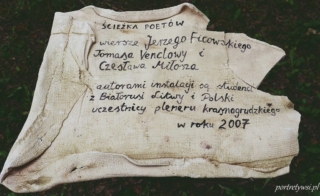 ŚCIEŻKA POETÓW
wiersze Jerzego Ficowskiego
Tomasa Venclovy i
Czesława Miłosza
autorami instalacji są studenci
z Białorusi Litwy i Polski
uczestnicy pleneru krasnogrudzkiego
w roku 2007
portretywsi.pl